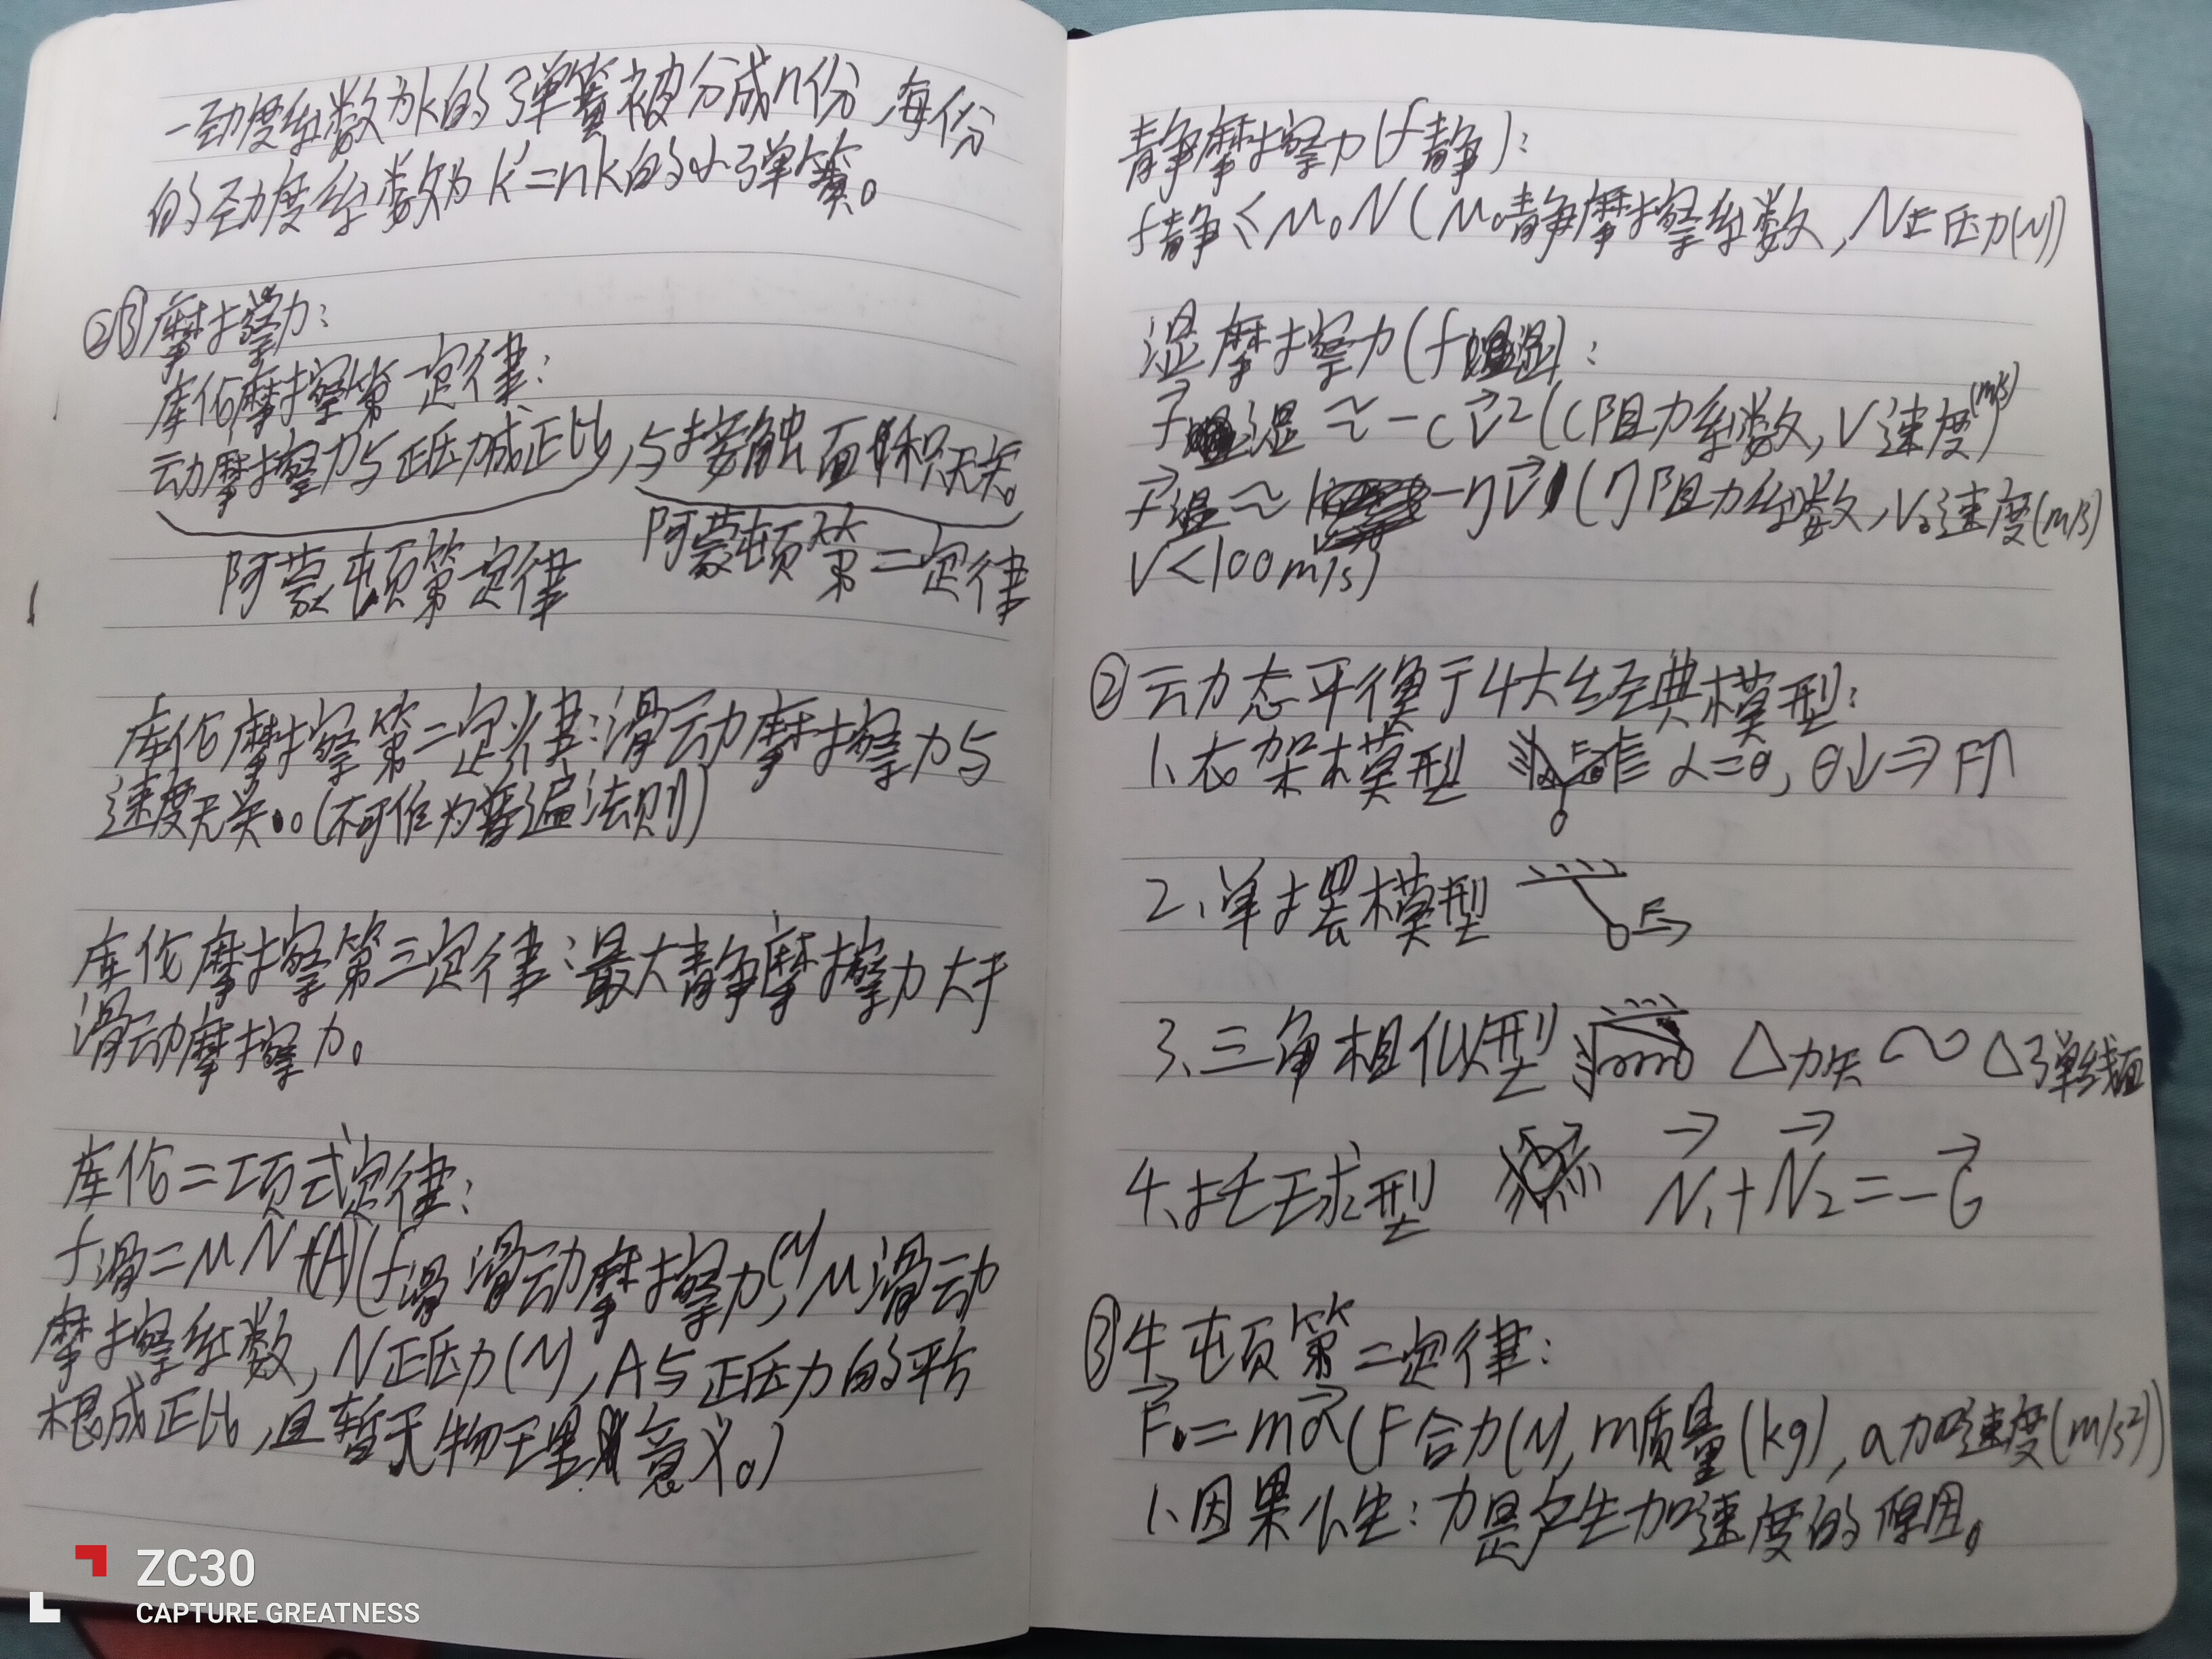 一劲度系数为k的弹簧被分成n份,每份
的劲度系数为k'=nk的小弹簧。
②摩擦力:
库伦摩擦第一定律:
动摩擦力与正压力成正比,与接触面积无关。
阿蒙顿第一定律 阿蒙顿第二定律
库伦摩擦第二定律:滑动摩擦力与
速度无关。(不可作为普遍法则)
库伦摩擦第三定律:最大静摩擦力大于
滑动摩擦力。
库伦二项式定律:
f滑=μN+(A)(f滑 滑动摩擦力(N),μ滑动
摩擦系数,N正压力(N),A与正压力的平方
根成正比,且暂无物理意义。)
静摩擦力(f静):
f静≤μ₀N(μ₀静摩擦系数,N正压力(N))
湿摩擦力(f湿):
f湿≈-cv²(c阻力系数,v速度(m/s))
f湿≈-ηv(η阻力系数,v速度(m/s)
v<100m/s)
②动态平衡于4大经典模型:
1、衣架模型 F α=θ,θ↓⇒F↑
2、单摆模型 F
3、三角相似型 △力矢∽△弹线面
4、托球型 N₁+N₂=-G
③牛顿第二定律:
F=ma(F合力(N),m质量(kg),a加速度(m/s²))
1、因果性:力是产生加速度的原因。
ZC30
CAPTURE GREATNESS